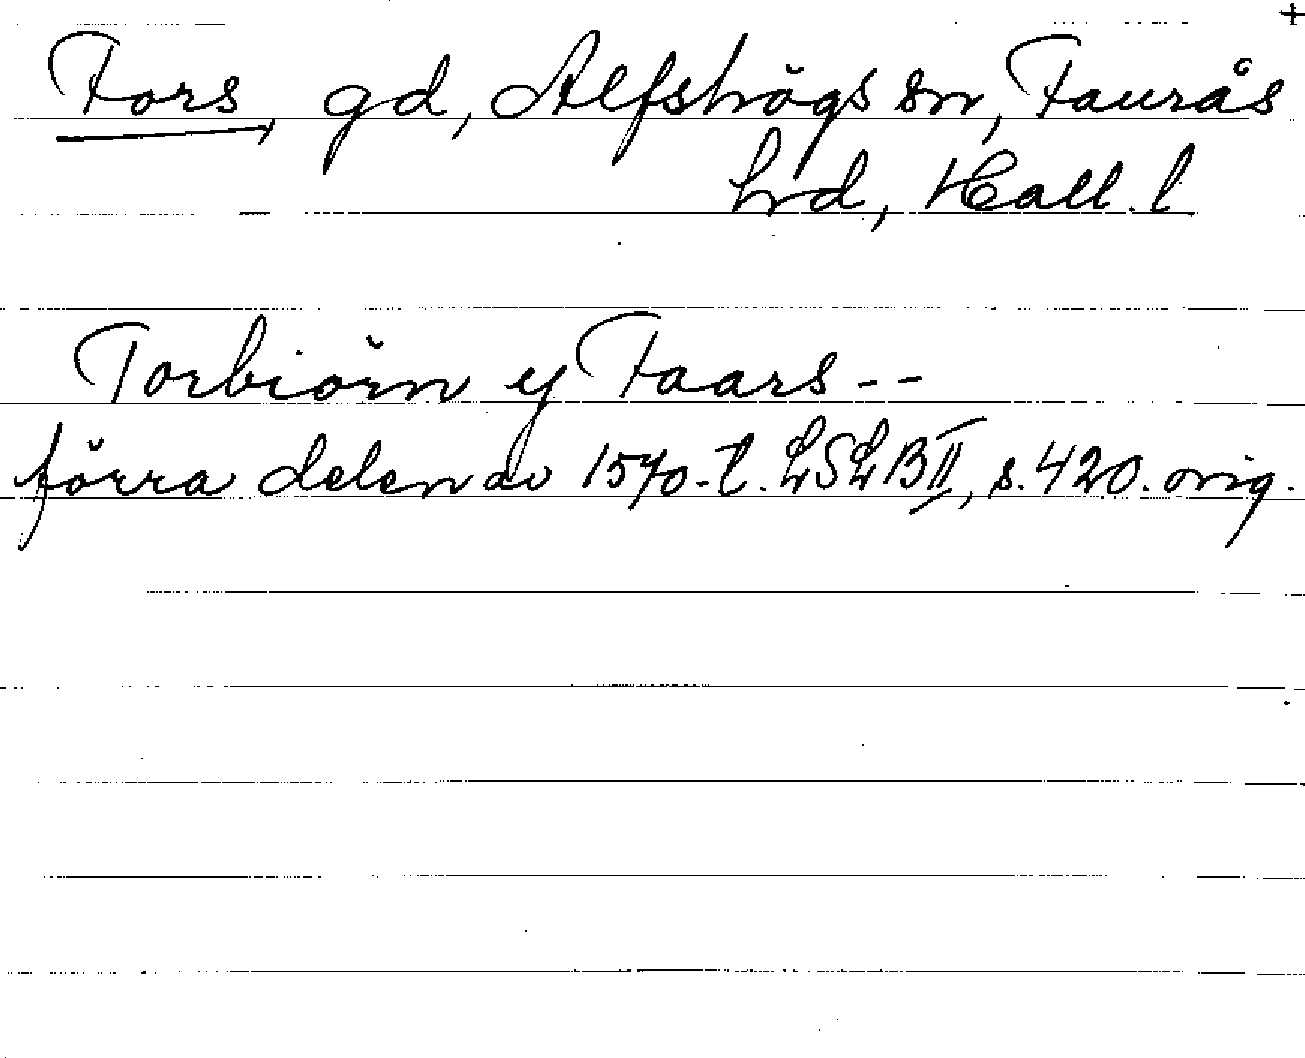 +
Fors, gd, Alfshögs sn, Faurås
hrd, Hall. l
Torbiörn y Faars --
förra delen av 1570-t. LSLB II, s. 420. orig.